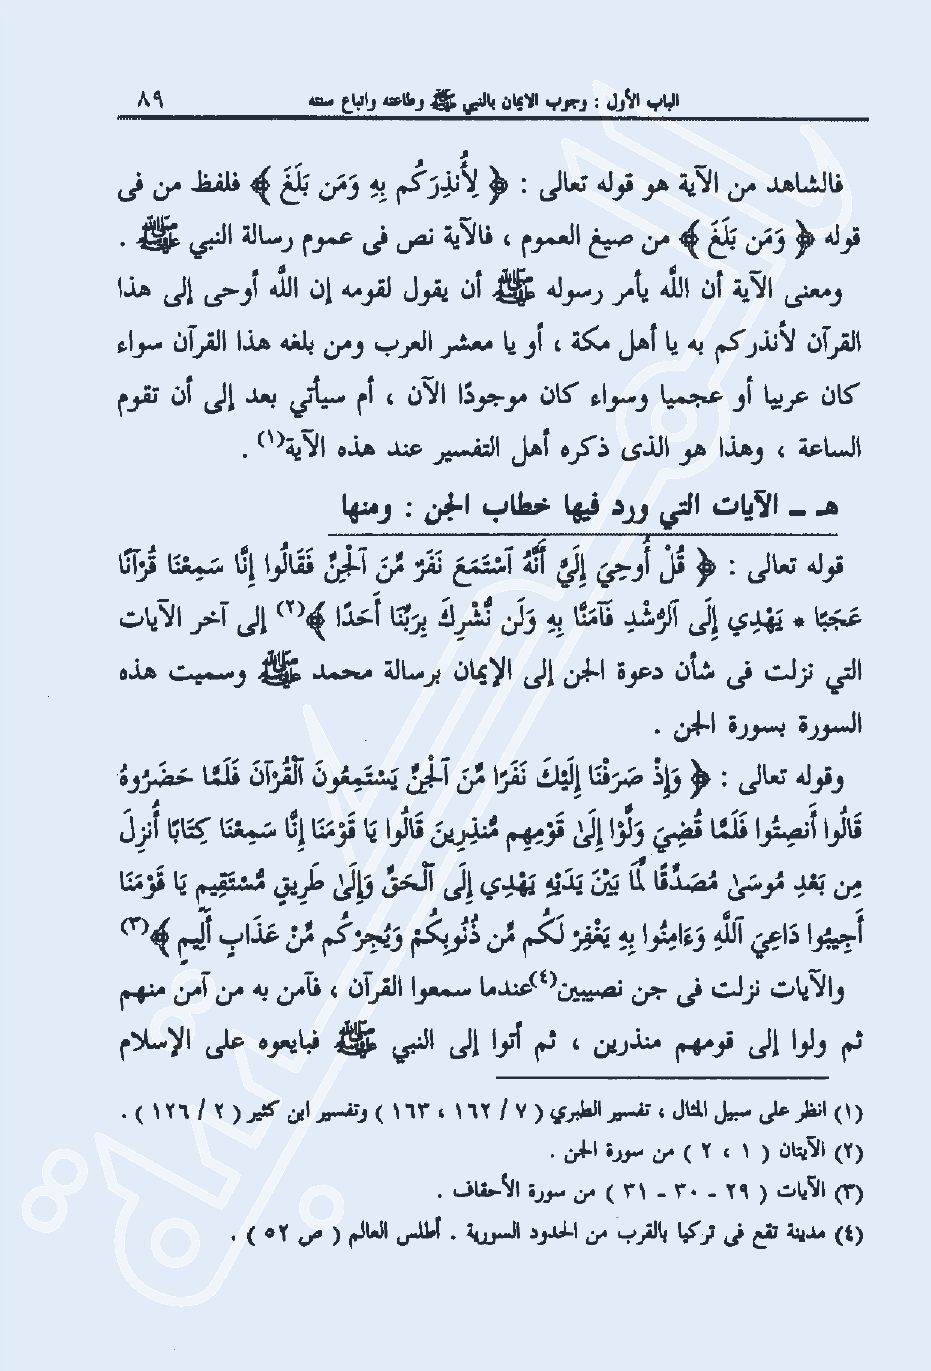 الباب الأول : وجوب الايمان بالنبي ﷺ وطاعته واتباع سنته ٨٩
فالشاهد من الآية هو قوله تعالى : ﴿ لِأُنذِرَكُم بِهِ وَمَن بَلَغَ ﴾ فلفظ من فى
قوله ﴿ وَمَن بَلَغَ ﴾ من صيغ العموم ، فالآية نص فى عموم رسالة النبي ﷺ .
ومعنى الآية أن اللَّه يأمر رسوله ﷺ أن يقول لقومه إن اللَّه أوحى إلى هذا
القرآن لأنذركم به يا أهل مكة ، أو يا معشر العرب ومن بلغه هذا القرآن سواء
كان عربيا أو عجميا وسواء كان موجودًا الآن ، أم سيأتي بعد إلى أن تقوم
الساعة ، وهذا هو الذى ذكره أهل التفسير عند هذه الآية(١) .
هـ - الآيات التي ورد فيها خطاب الجن : ومنها
قوله تعالى : ﴿ قُلْ أُوحِيَ إِلَيَّ أَنَّهُ ٱسْتَمَعَ نَفَرٌ مِّنَ ٱلْجِنِّ فَقَالُوا إِنَّا سَمِعْنَا قُرْآنًا
عَجَبًا * يَهْدِي إِلَى ٱلرُّشْدِ فَآمَنَّا بِهِ وَلَن نُّشْرِكَ بِرَبِّنَا أَحَدًا ﴾(٢) إلى آخر الآيات
التي نزلت فى شأن دعوة الجن إلى الإيمان برسالة محمد ﷺ وسميت هذه
السورة بسورة الجن .
وقوله تعالى : ﴿ وَإِذْ صَرَفْنَا إِلَيْكَ نَفَرًا مِّنَ ٱلْجِنِّ يَسْتَمِعُونَ ٱلْقُرْآنَ فَلَمَّا حَضَرُوهُ
قَالُوا أَنصِتُوا فَلَمَّا قُضِيَ وَلَّوْا إِلَىٰ قَوْمِهِم مُّنذِرِينَ قَالُوا يَا قَوْمَنَا إِنَّا سَمِعْنَا كِتَابًا أُنزِلَ
مِن بَعْدِ مُوسَىٰ مُصَدِّقًا لِّمَا بَيْنَ يَدَيْهِ يَهْدِي إِلَى ٱلْحَقِّ وَإِلَىٰ طَرِيقٍ مُّسْتَقِيمٍ يَا قَوْمَنَا
أَجِيبُوا دَاعِيَ ٱللَّهِ وَءَامِنُوا بِهِ يَغْفِرْ لَكُم مِّن ذُنُوبِكُمْ وَيُجِرْكُم مِّنْ عَذَابٍ أَلِيمٍ ﴾(٣)
والآيات نزلت فى جن نصيبين(٤) عندما سمعوا القرآن ، فآمن به من آمن منهم
ثم ولوا إلى قومهم منذرين ، ثم أتوا إلى النبي ﷺ فبايعوه على الإسلام
(١) انظر على سبيل المثال ، تفسير الطبري ( ٧ / ١٦٢ ، ١٦٣ ) وتفسير ابن كثير ( ٢ / ١٢٦ ) .
(٢) الآيتان ( ١ ، ٢ ) من سورة الجن .
(٣) الآيات ( ٢٩ - ٣٠ - ٣١ ) من سورة الأحقاف .
(٤) مدينة تقع فى تركيا بالقرب من الحدود السورية . أطلس العالم ( ص ٥٢ ) .